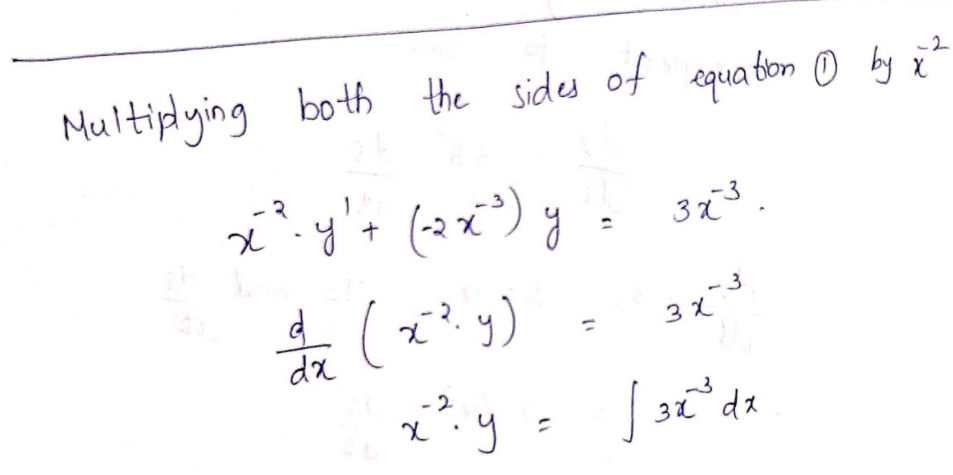 Multiplying both the sides of equation ① by x⁻²
x⁻² · y' + (-2x⁻³) y = 3x⁻³.
d/dx (x⁻² · y) = 3x⁻³
x⁻² · y = ∫ 3x⁻³ dx